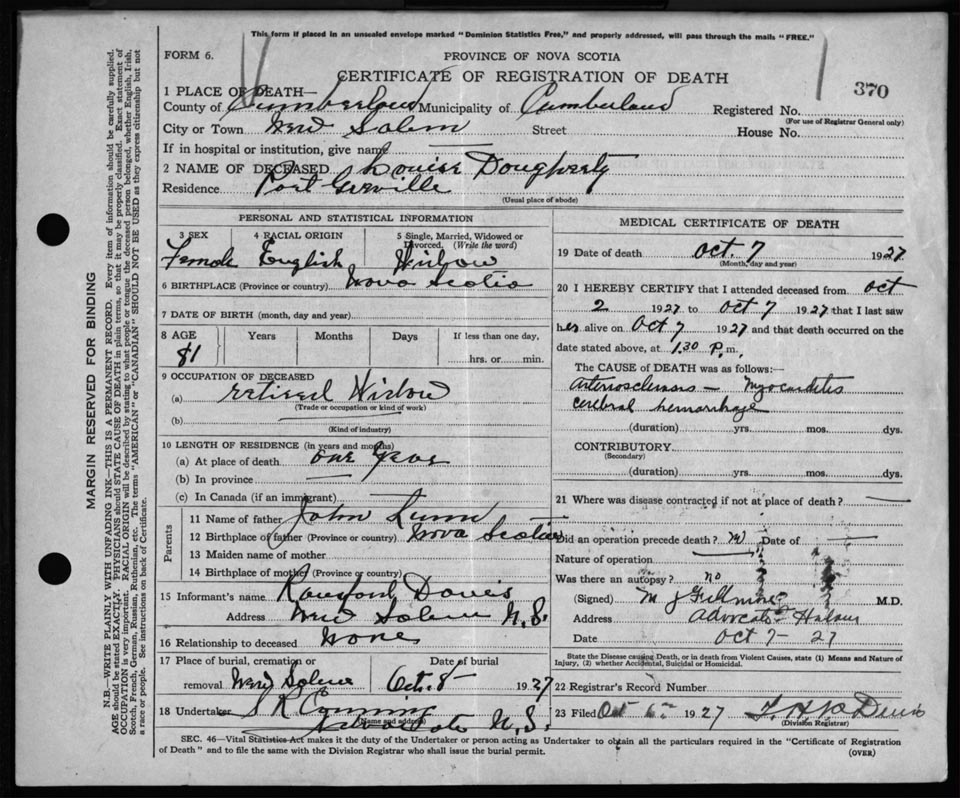 This form if placed in an unsealed envelope marked "Dominion Statistics Free," and properly addressed, will pass through the mails "FREE."
FORM 6.
PROVINCE OF NOVA SCOTIA
CERTIFICATE OF REGISTRATION OF DEATH
370
1 PLACE OF DEATH—
County of Cumberland Municipality of Cumberland Registered No.
(For use of Registrar General only)
City or Town New Salem Street House No.
If in hospital or institution, give name
2 NAME OF DECEASED Louise Dougherty
Residence Port Greville
(Usual place of abode)
PERSONAL AND STATISTICAL INFORMATION
3 SEX 4 RACIAL ORIGIN 5 Single, Married, Widowed or Divorced. (Write the word)
Female English Widow
6 BIRTHPLACE (Province or country) Nova Scotia
7 DATE OF BIRTH (month, day and year)
8 AGE Years Months Days If less than one day,
81 hrs. or min.
9 OCCUPATION OF DECEASED
(a) retired Widow
(Trade or occupation or kind of work)
(b)
(Kind of industry)
10 LENGTH OF RESIDENCE (in years and months)
(a) At place of death one Year
(b) In province —
(c) In Canada (if an immigrant)
Parents
11 Name of father John
12 Birthplace of father (Province or country) Nova Scotia
13 Maiden name of mother
14 Birthplace of mother (Province or country)
15 Informant's name Ransford Davis
Address New Salem N.S.
16 Relationship to deceased None
17 Place of burial, cremation or removal New Salem
Date of burial Oct. 8 1927
18 Undertaker S R
(Name and address)
Advocate N.S.
MEDICAL CERTIFICATE OF DEATH
19 Date of death Oct. 7 1927
(Month, day and year)
20 I HEREBY CERTIFY that I attended deceased from Oct
2 1927 to Oct 7 1927 that I last saw
her alive on Oct 7 1927 and that death occurred on
date stated above, at 1.30 P.m.
The CAUSE of DEATH was as follows:—
arteriosclerosis — myocarditis
cerebral hemorrhage
(duration) yrs. mos. dys.
CONTRIBUTORY.
(Secondary)
(duration) yrs. mos. dys.
21 Where was disease contracted if not at place of death? —
Did an operation precede death? no Date of —
Nature of operation
Was there an autopsy? no
(Signed) M J Gillmore M.D.
Address Advocate Harbour
Date Oct 7 - 27
State the Disease causing Death, or in death from Violent Causes, state (1) Means and Nature of
Injury, (2) whether Accidental, Suicidal or Homicidal.
22 Registrar's Record Number
23 Filed Oct 1927
(Division Registrar)
SEC. 46—Vital Statistics Act makes it the duty of the Undertaker or person acting as Undertaker to obtain all the particulars required in the "Certificate of Registration
of Death" and to file the same with the Division Registrar who shall issue the burial permit.
(OVER)
MARGIN RESERVED FOR BINDING
N.B.—WRITE PLAINLY WITH UNFADING INK—THIS IS A PERMANENT RECORD. Every item of information should be carefully supplied.
AGE should be stated EXACTLY. PHYSICIANS should STATE CAUSE OF DEATH in plain terms, so that it may be properly classified. Exact statement of
OCCUPATION is very important. RACIAL ORIGIN will be described by stating to what people or tongue the deceased person belonged, whether English, Irish,
Scotch, French, German, Russian, Ruthenian, etc. The terms "AMERICAN" or "CANADIAN" SHOULD NOT BE USED as they express citizenship but not
a race or people. See instructions on back of Certificate.